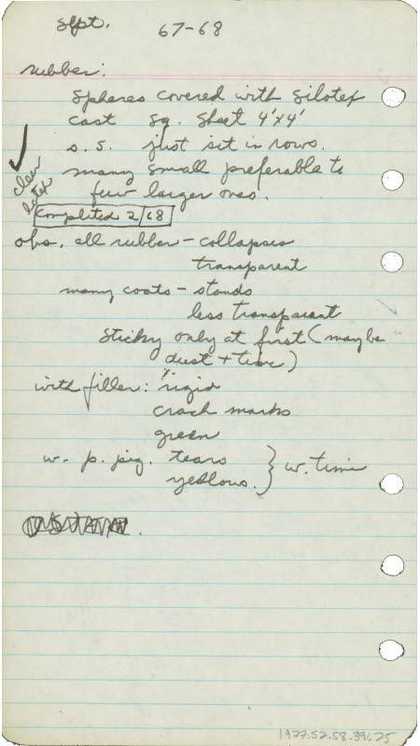 Sept. 67-68
rubber:
spheres covered with silotex
cast sq. sheet 4'x4'
s. s. just sit in rows.
many small preferable to
few larger ones.
clear
latex
Completed 2/68
obs. all rubber - collapses
transparent
many coats - stands
less transparent
sticky only at first (maybe
dust + time)
with filler: rigid
crack marks
green
w. p. pig. tears } w. time
yellows.
1977.52.58.39.25